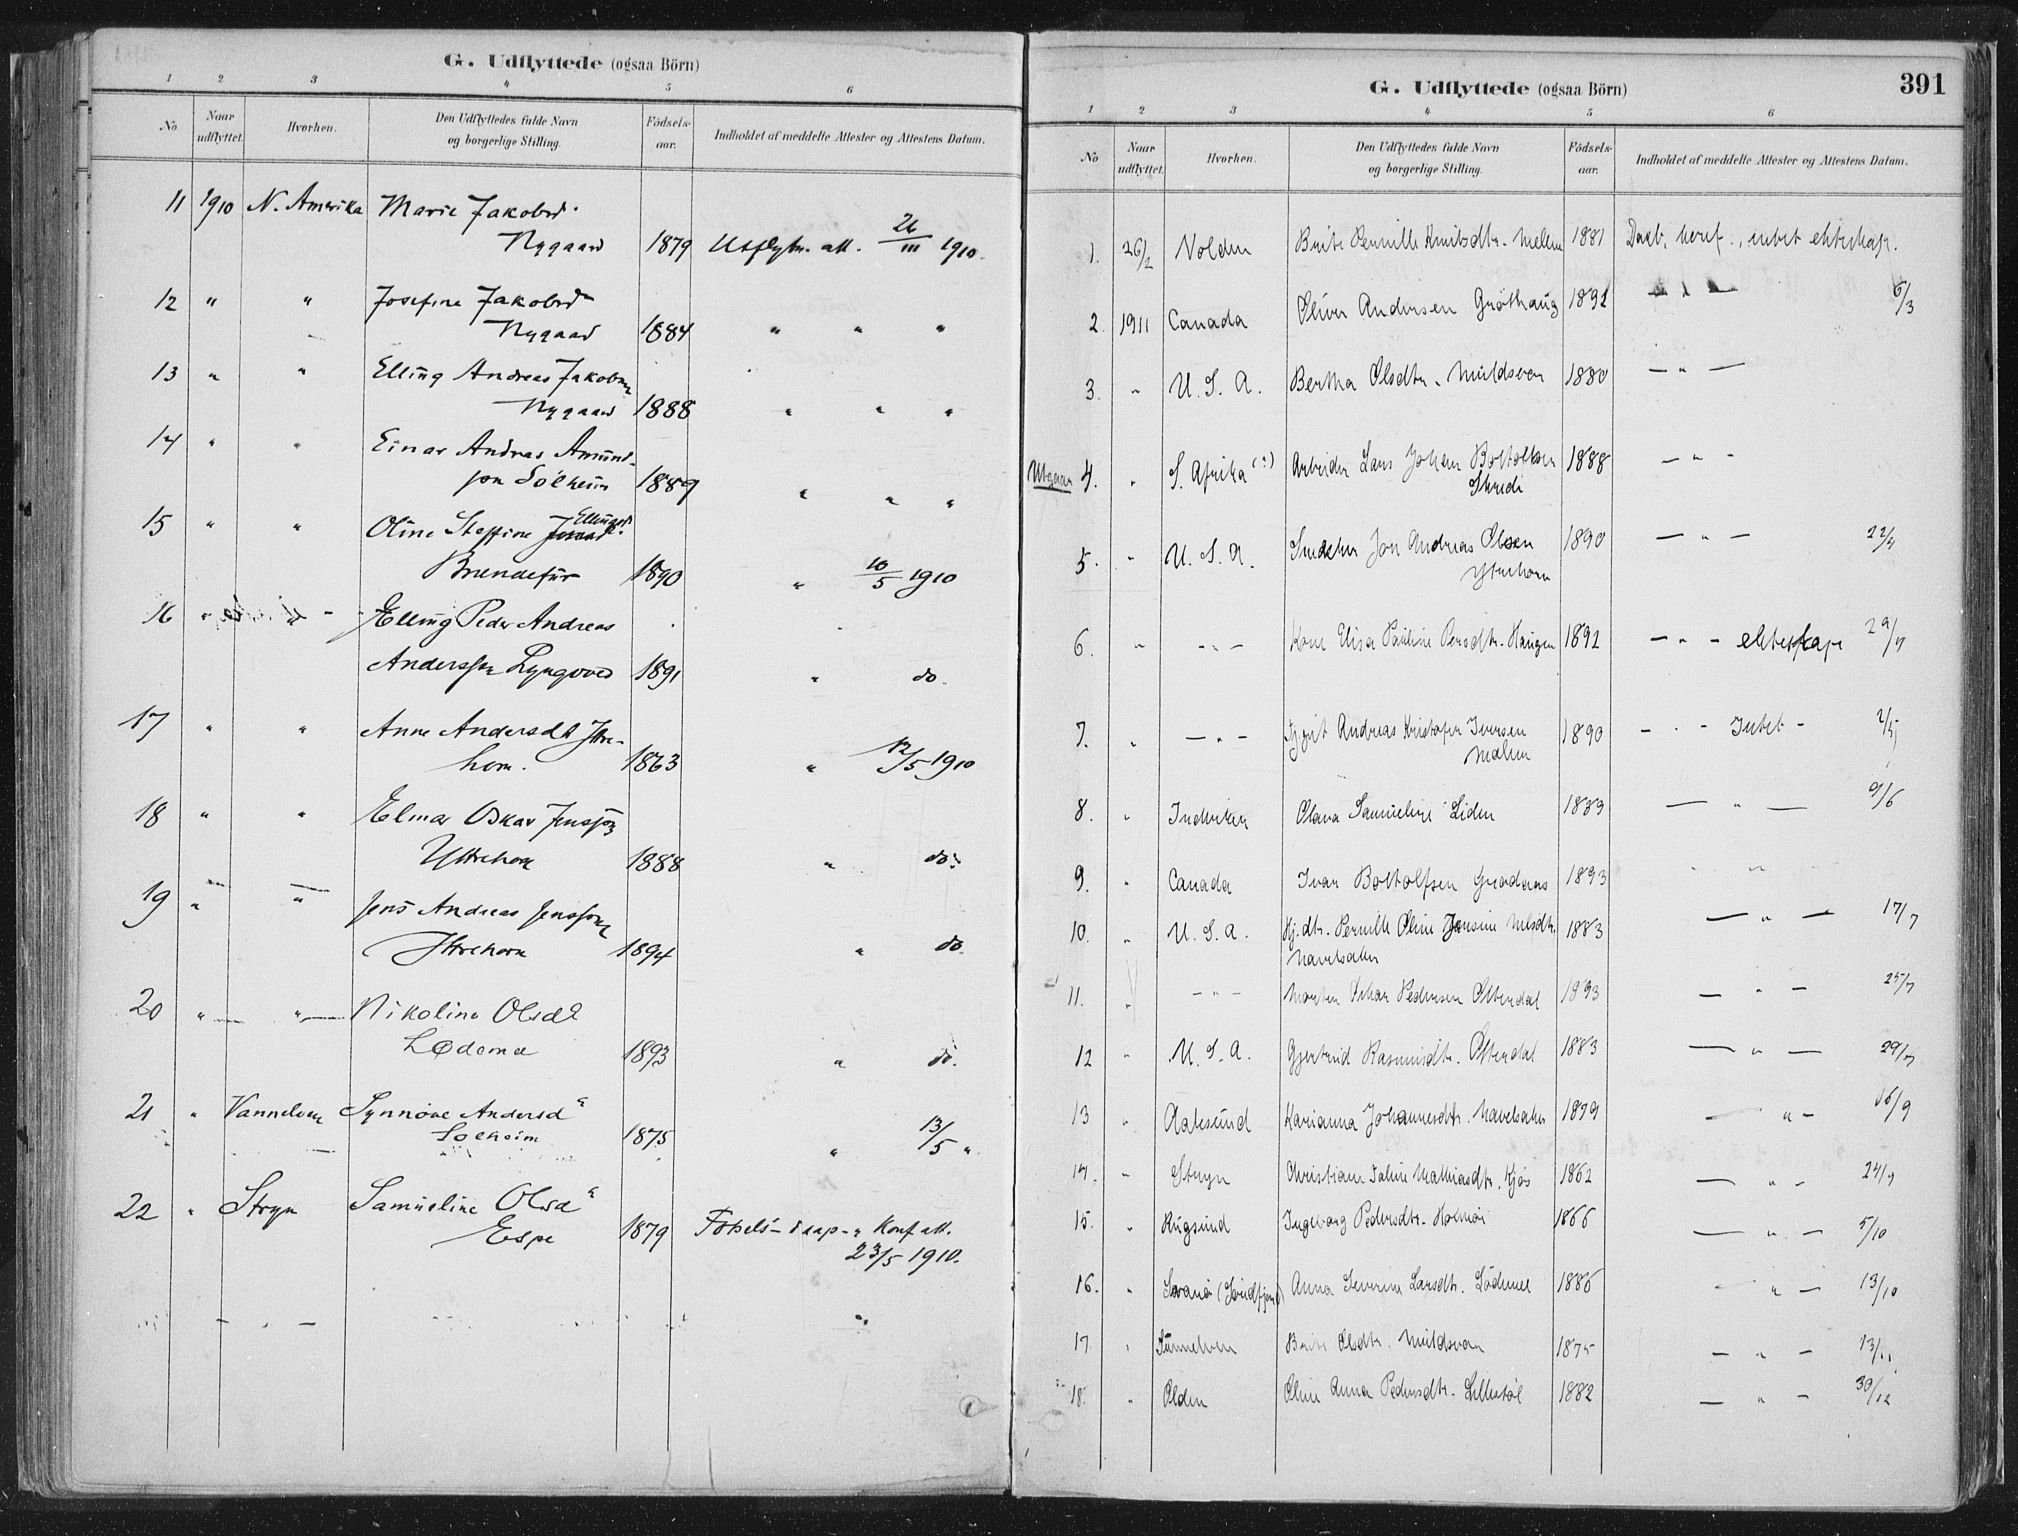 G. Udflyttede (ogsaa Börn)
1 2 3 4 5 6
No Naar udflyttet. Hvorhen. Den Udflyttedes fulde Navn og borgerlige Stilling. Födsels-aar. Indholdet af meddelte Attester og Attestens Datum.
11 1910 N. Amerika Marie Jakobsd.
Nygaard 1879 Utflytn. att. 26/III 1910.
12 " " Josefine Jakobsd
Nygaard 1884 " " "
13 " " Elling Andreas Jakobsen
Nygaard 1888 " " "
14 " " Einar Andreas Amund-
son Solheim 1889 " " "
15 " " Oline Steffine Ellingsd.
1890 " 10/5 1910
16 " Elling Peder Andreas
Anderssen 1891 " do.
17 " " Anne Andersdt Ytre-
horn. 1863 " 12/5 1910
18 " " Elmar Oskar Jensson
Yttrehorn 1888 " do.
19 " " Jens Andreas Jensson
Yttrehorn 1894 " do.
20 " " Nikoline Olsd
Lødemel 1893 " do.
21 " Synnöve Andersd
Solheim 1875 " 13/5 "
22 " Stryn Samueline Olsd
Espe 1879 Fødsels- daap- " Konf att.
23/5 1910.
G. Udflyttede (ogsaa Börn) 391
1 2 3 4 5 6
No Naar udflyttet. Hvorhen. Den Udflyttedes fulde Navn og borgerlige Stilling. Födsels-aar. Indholdet af meddelte Attester og Attestens Datum.
1. 26/2 Volden Brite Pernille Knutsdtr. Mellem 1881 Daab, konf., intet ekteskap.
2. 1911 Canada Oliver Andersen Grøthaug 1891 — " — 6/3
3. " U. S. A. Bertha Olsdtr. Muldsvor 1880 — " —
4. " S. Afrika (?) Arbeider Lars Johan 1888 — " —
5. " U. S. A. Jon Andreas Olsen
Ytrehorn 1890 — " — 22/4
6. " — " — Elisa Pauline Persdtr. Haugen 1892 — " — ekteskap 29/4
7. " — " — Andreas Kristofer Iversen
1890 — " — Intet — 2/5
8. " Indviken Olava Samueline Liden 1889 — " — 9/6
9. " Canada Ivar Botolfsen 1893 " "
10. " U. S. A. Pernille Oline Jensine Nilsdtr.
Navelsaker 1883 — " — 17/7
11. " — " — Morten Johan Pedersen Otterdal 1893 — " — 25/7
12 " U. S. A. Gjertrud Rasmusdtr. Otterdal 1883 — " — 29/7
13 " Aalesund Karianna Johannesdtr. Navelsaker 1879 — " — 16/9
14. " Stryn Christiane Mathiasdtr. Kjös 1862 — " — 24/9
15. " Ingeborg Pedersdtr. 1866 — " — 5/10
16. " Svanö (Söndfjord) Anna Severine Larsdtr. Lödemel 1886 — " — 13/10
17. " Sunnelven Brite Olsdtr. Muldsvor 1875 — " — 13/11
18. " Olden Oline Anna Pedersdtr. 1882 — " — 30/12